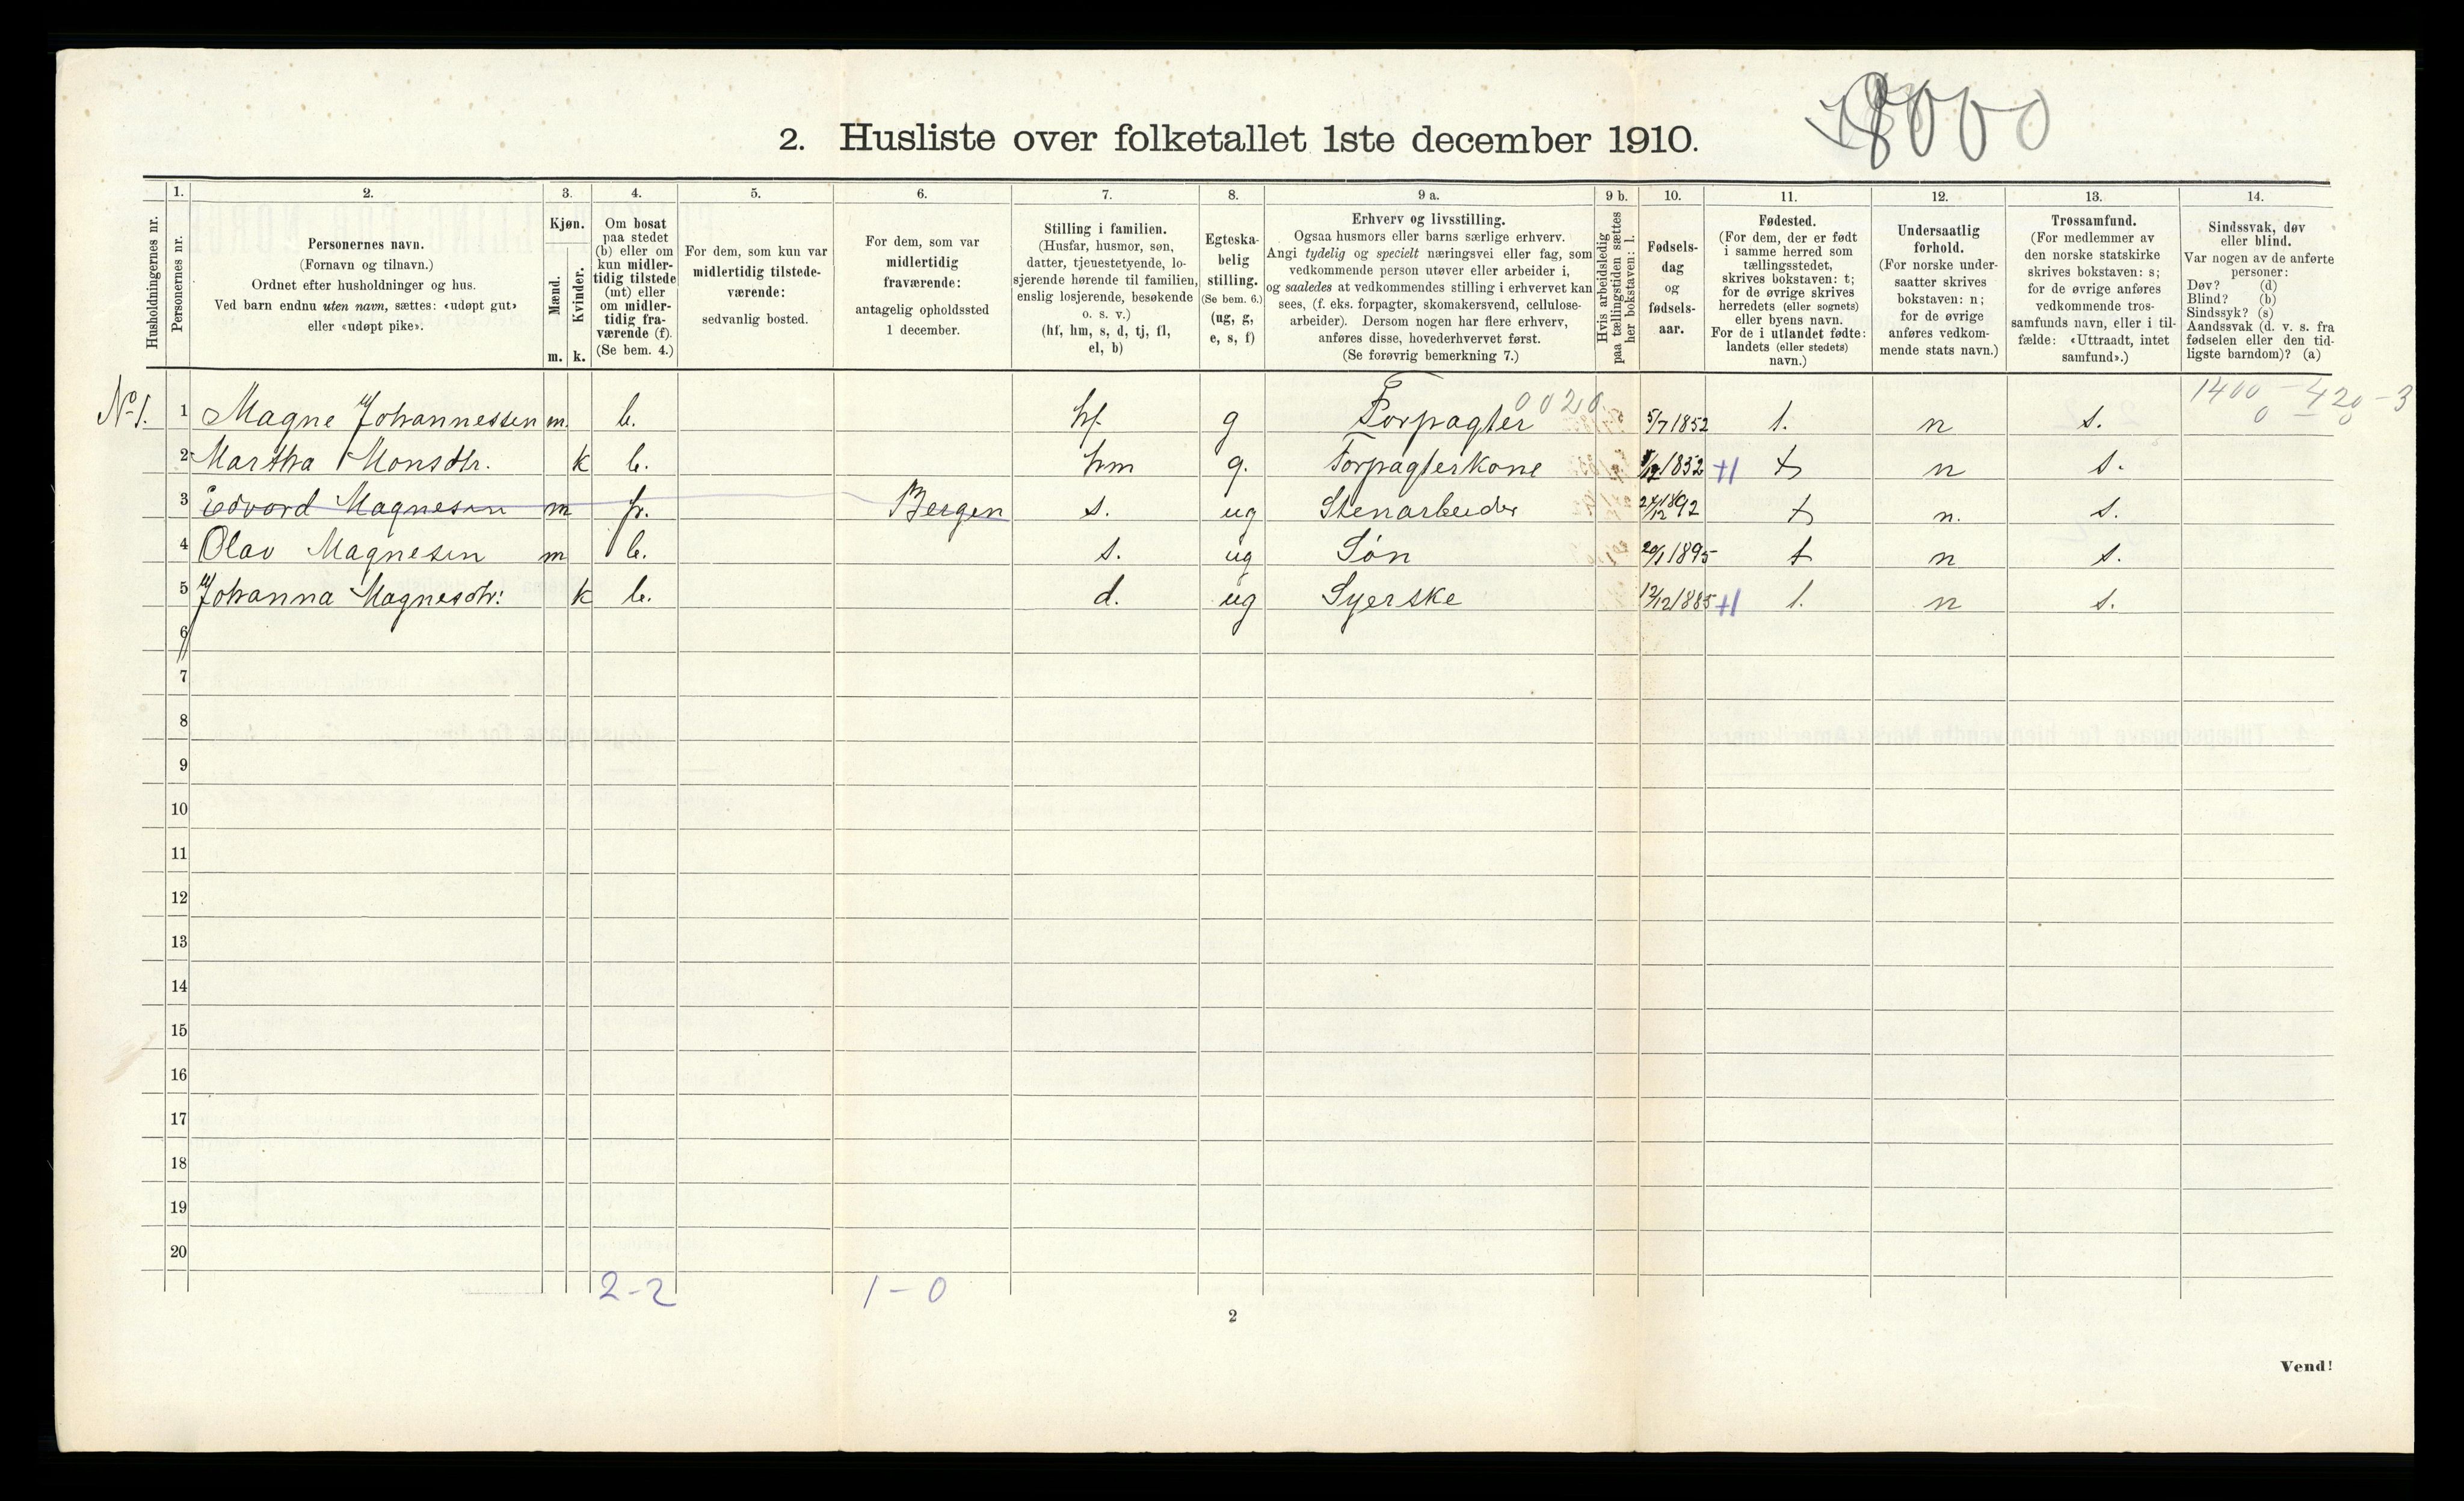 18000
2. Husliste over folketallet 1ste december 1910.
Husholdningernes nr.
1.
Personernes nr.
2.
Personernes navn.
(Fornavn og tilnavn.)
Ordnet efter husholdninger og hus.
Ved barn endnu uten navn, sættes: «udøpt gut»
eller «udøpt pike».
3.
Kjøn.
Mænd.
m.
Kvinder.
k.
4.
Om bosat
paa stedet
(b) eller om
kun midler-
tidig tilstede
(mt) eller
om midler-
tidig fra-
værende (f).
(Se bem. 4.)
5.
For dem, som kun var
midlertidig tilstede-
værende:
sedvanlig bosted.
6.
For dem, som var
midlertidig
fraværende:
antagelig opholdssted
1 december.
7.
Stilling i familien.
(Husfar, husmor, søn,
datter, tjenestetyende, lo-
sjerende hørende til familien,
enslig losjerende, besøkende
o. s. v.)
(hf, hm, s, d, tj, fl,
el, b)
8.
Egteska-
belig
stilling.
(Se bem. 6.)
(ug, g,
e, s, f)
9 a.
Erhverv og livsstilling.
Ogsaa husmors eller barns særlige erhverv.
Angi tydelig og specielt næringsvei eller fag, som
vedkommende person utøver eller arbeider i,
og saaledes at vedkommendes stilling i erhvervet kan
sees, (f. eks. forpagter, skomakersvend, cellulose-
arbeider). Dersom nogen har flere erhverv,
anføres disse, hovederhvervet først.
(Se forøvrig bemerkning 7.)
9 b.
Hvis arbeidsledig
paa tællingstiden sættes
her bokstaven: l.
10.
Fødsels-
dag
og
fødsels-
aar.
11.
Fødested.
(For dem, der er født
i samme herred som
tællingsstedet,
skrives bokstaven: t;
for de øvrige skrives
herredets (eller sognets)
eller byens navn.
For de i utlandet fødte:
landets (eller stedets)
navn.)
12.
Undersaatlig
forhold.
(For norske under-
saatter skrives
bokstaven: n;
for de øvrige
anføres vedkom-
mende stats navn.)
13.
Trossamfund.
(For medlemmer av
den norske statskirke
skrives bokstaven: s;
for de øvrige anføres
vedkommende tros-
samfunds navn, eller i til-
fælde: «Uttraadt, intet
samfund».)
14.
Sindssvak, døv
eller blind.
Var nogen av de anførte
personer:
Døv? (d)
Blind? (b)
Sindssyk? (s)
Aandssvak (d. v. s. fra
fødselen eller den tid-
ligste barndom)? (a)
0020
1400 – 420 – 3
0 0
No 1. 1 Magne Johannessen m. b. hf. g Forpagter 5/7 1852 t. n s.
2 Martha Monsdtr. k b. hm g. Forpagterkone 1852 +1 t n s.
3 Edvard Magnesen m fr. Bergen s. ug Stenarbeider 27/12 1892 t n. s.
4 Olav Magnesen m b. s. ug Søn 20/1 1895 t n s.
5 Johanna Magnesdtr: k b. d. ug Syerske 12/12 1885 +1 t. n s.
6
7
8
9
10
11
12
13
14
15
16
17
18
19
20
2-2 1-0
2
Vend!